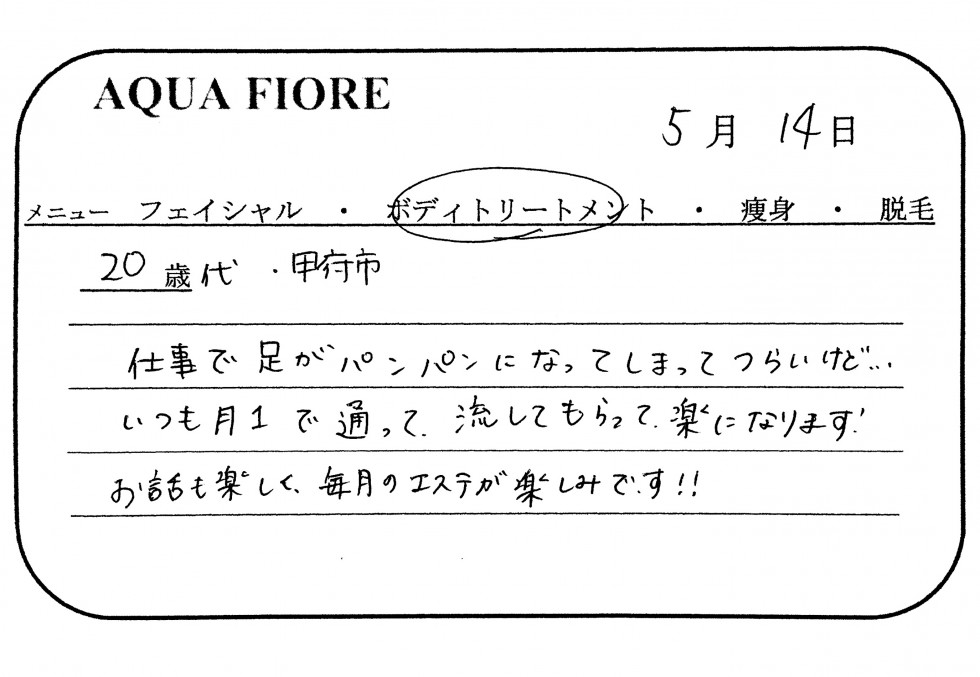 AQUA FIORE
5月 14日
メニュー フェイシャル ・ ボディトリートメント ・ 痩身 ・ 脱毛
20歳代 ・甲府市
仕事で足がパンパンになってしまってつらいけど...
いつも月1で通って、流してもらって、楽になります!
お話も楽しく、毎月のエステが楽しみです!!